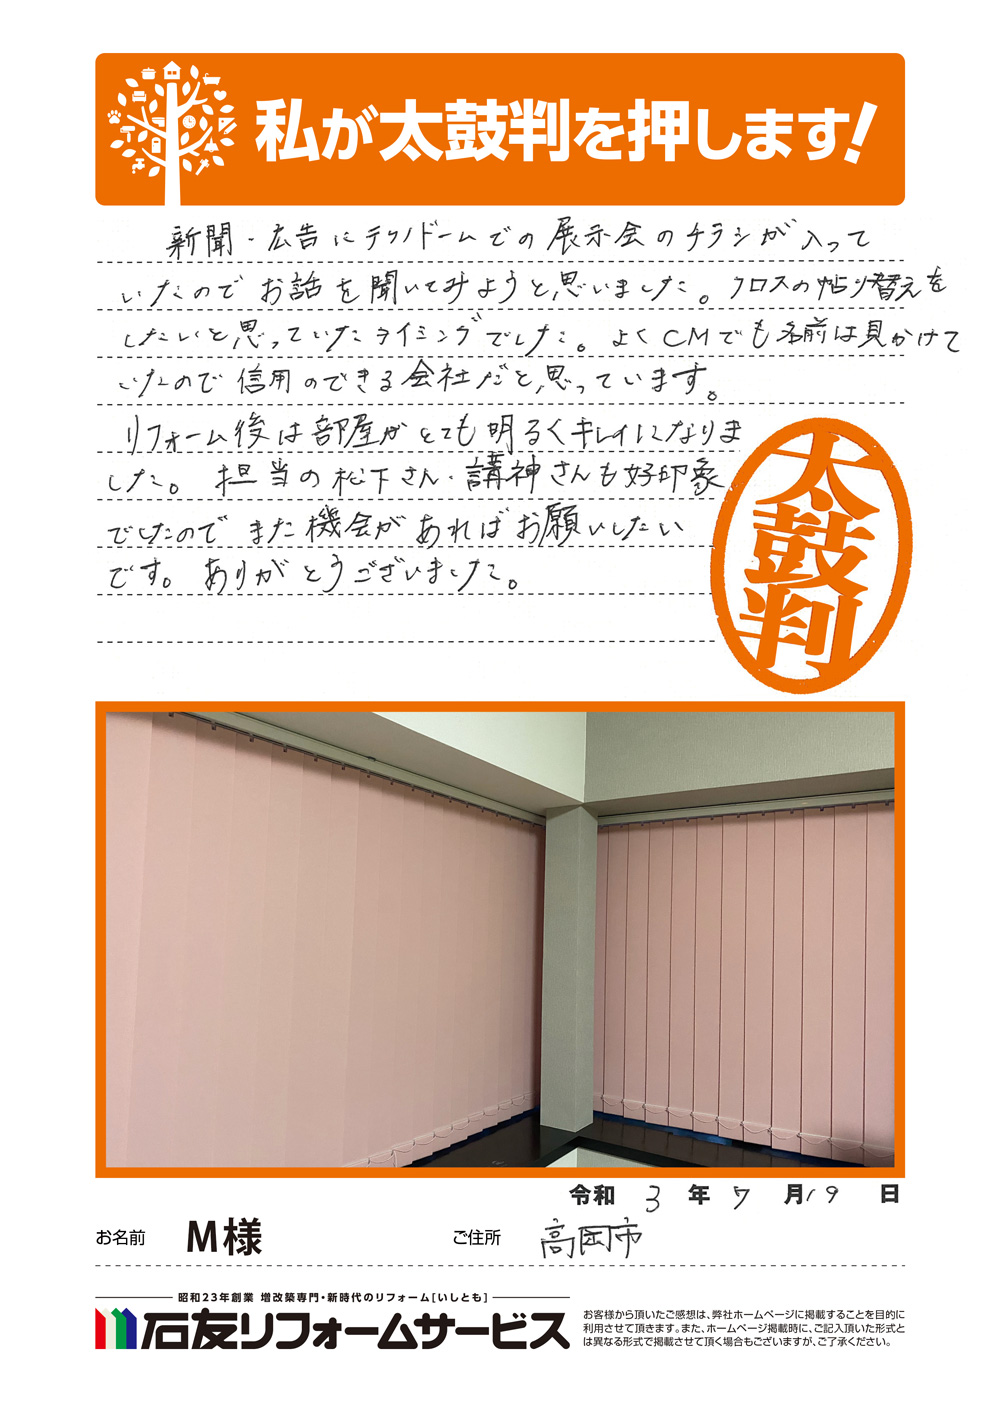 私が太鼓判を押します!
新聞・広告にテクノドームでの展示会のチラシが入って
いたのでお話を聞いてみようと思いました。クロスの貼り替えを
したいと思っていたタイミングでした。よくCMでも名前は見かけて
いたので信用のできる会社だと思っています。
リフォーム後は部屋がとても明るくキレイになりま
した。担当の松下さん・講神さんも好印象
でしたのでまた機会があればお願いしたい
です。ありがとうございました。
太鼓判
令和 3 年 7 月 19 日
お名前 M様 ご住所 高岡市
昭和23年創業 増改築専門・新時代のリフォーム[いしとも]
石友リフォームサービス
お客様から頂いたご感想は、弊社ホームページに掲載することを目的に
利用させて頂きます。また、ホームページ掲載時に、ご記入頂いた形式と
は異なる形式で掲載させて頂く場合もございますが、ご了承ください。